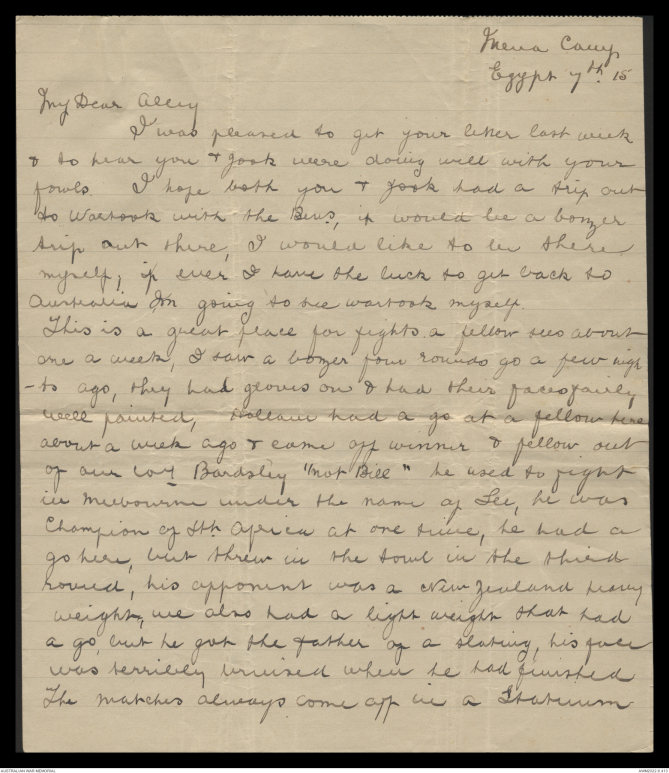 Mena Camp
Egypt 7th. 15
My Dear Alley
I was pleased to get your letter last week
& to hear you & Jook were doing well with your
fowls. I hope both you & Jook had a trip out
to Wartook with the Bens, it would be a bonzer
trip out there, I would like to be there
myself; if ever I have the luck to get back to
Australia Im going to see wartook myself.
This is a great place for fights. a fellow sees about
one a week, I saw a bonzer four rounds go a few nigh
-ts ago, they had gloves on & had their faces fairly
well painted, had a go at a fellow here
about a week ago & came off winner & fellow out
of our coy Bardsley "not Bill" he used to fight
in Melbourne under the name of Lee, he was
Champion of Sth Africa at one time, he had a
go here, but threw in the towl in the third
round, his opponent was a New Zealand heavy
weight, we also had a light weight that had
a go, but he got the father of a slating, his face
was terribly bruised when he had finished
The matches always come off in a Statinum
AUSTRALIAN WAR MEMORIAL